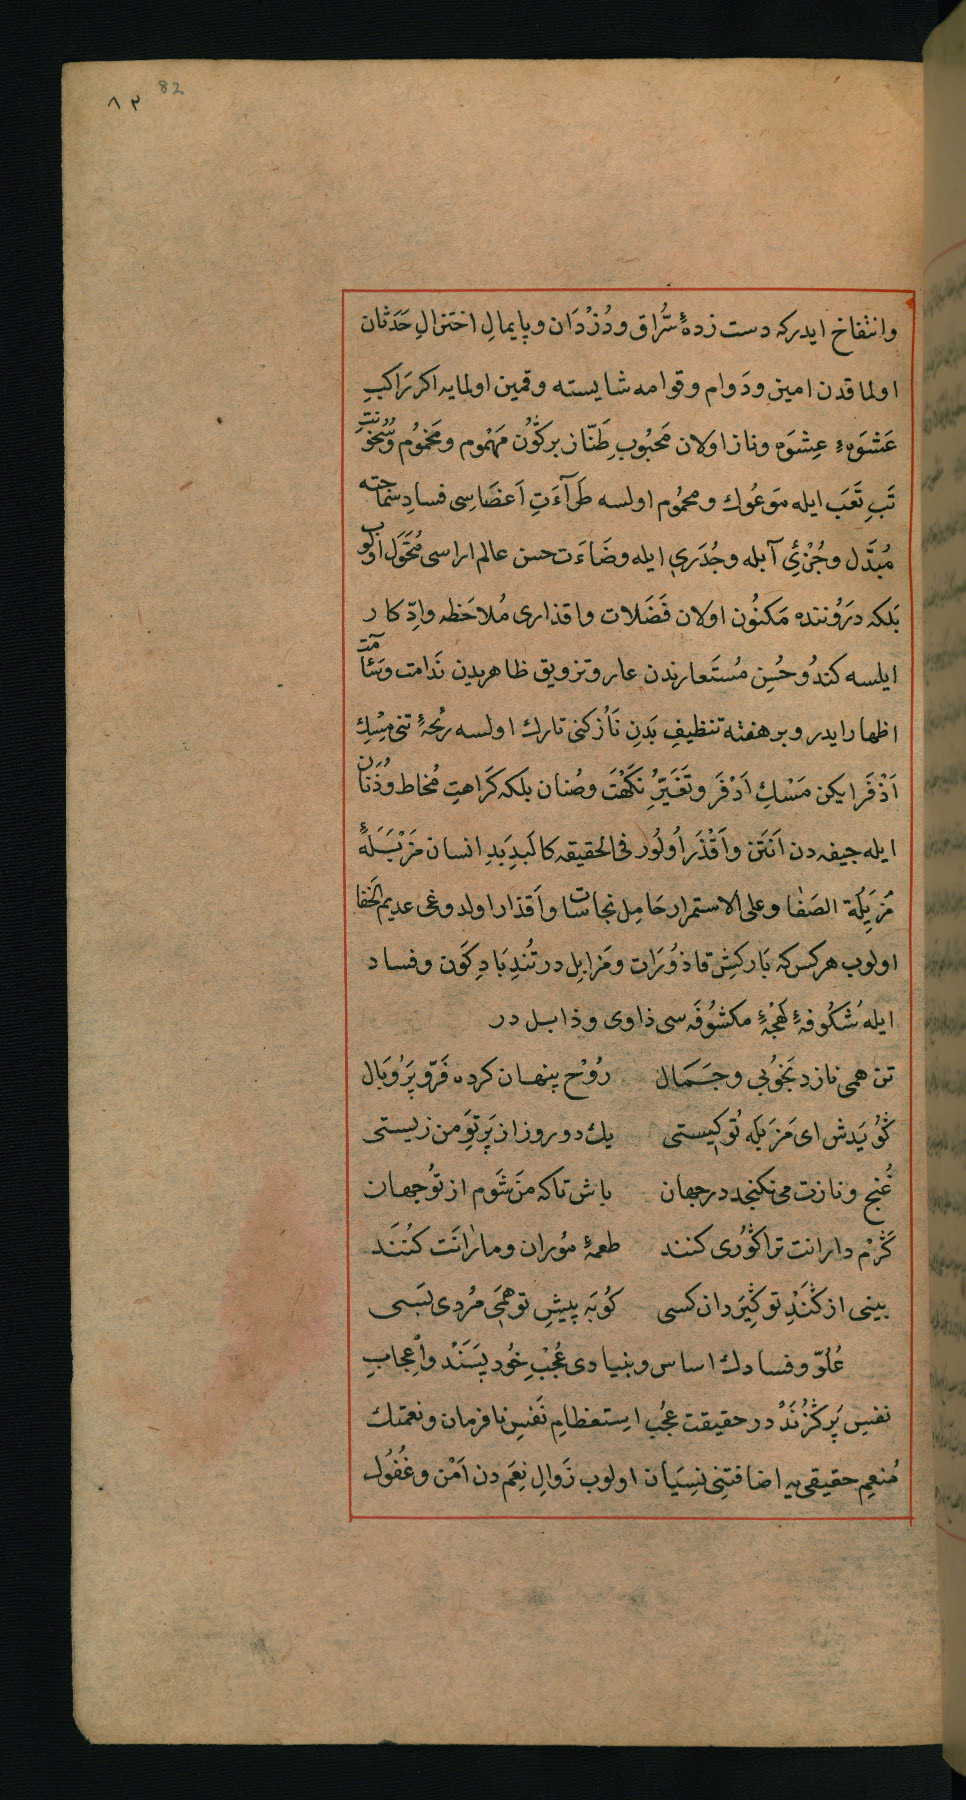 82
٨٢
وانتفاخ ایدرکه دست زدهٔ سُّراق ودُزْدَان وپایمالِ اختزالِ حَدَثان
اولماقدن امین ودَوام وقوامه شایسته وقمین اولمایه اکر رَاکبِ
عَشْوَهءِ عِشوَه وناز اولان مَحبُوبِ طَنّاز برکُون مَهْموم ومَخمُوم وسُخُونتِ
تَبِ تَعَب ایله مَوعُوك ومحمُوم اولسه طَرآءَتِ اَعضَاسی فسادِ سَمَاجته
مُبدَّل وجُزْئِ آبله وجُدَری ایله وضَاءَت حسن عالم اراسی مُحَوَّل اولوب
بَلکه دَرُوننده مَکنُون اولان فَضَلات واقذاری مُلاحَظه وادِّکار
ایلسه کندُو حُسنِ مُستَعارندن عار وتزویق ظاهریدن نَدامت وسَئامَت
اظهار ایدر وبر هفته تنظیفِ بَدَنِ نَازُکنی تارك اولسه رَیحهٔ تنی مِسْكِ
اَذْفَر ایکن مَسْكِ اَدْفَر وتَغَیُّرِ نَکْهَتَ وصُنان بلکه کَرَاهتِ مُخاط وذُنَان
ایله جیفه دن اَنتَن واَقْذَر اُولُور فی الحقیقه کالبدِ بَدِ انسان مَزْبَلَهٔ
مُزَیِلَة الصَفٰا وعلی الاستمرار حَامِل نجاسات واَقذار اولدوغی عدیم الخفا
اولوب هرکس که بَارکشِ قاذُورَات ومَزابِل در تُندِ بَادِ کَون وفساد
ایله شکُوفهٔ لَهجهٔ مکشُوفَه سی ذاوی وذابل در
تن همی نازد بَخُوبی وجَمَال رُوْح پنهان کرده فَرّ وپَرُوبَال
کُویَدش ای مَزبَله تُو کیستی یك دو روز از پَرتوِ من زیستی
غُنج ونازت می نکنجد در جهان باش تا که مَن شَوم از تُو جهان
کَرْم دارانت ترا کُوری کنند طعمهٔ مُوران ومارٰانَت کُنَند
بینی از کَنْدِ تو کِیرَد ان کسی کُو بَه پیشِ تو همی مُردی بَسی
عُلُوّ وفسادك اساس وبنیادی عُجْبِ خُود پَسَنْد واِعجابِ
نفسِ پُر کَزَنَدْ در حقیقت عجُب استعظامِ نَفسِ نافرمان ونعمتك
مُنعِم حقیقی یه اضافتِنی نِسیَان اولوب زَوالِ نِعَم دن اَمْن وغُفُول